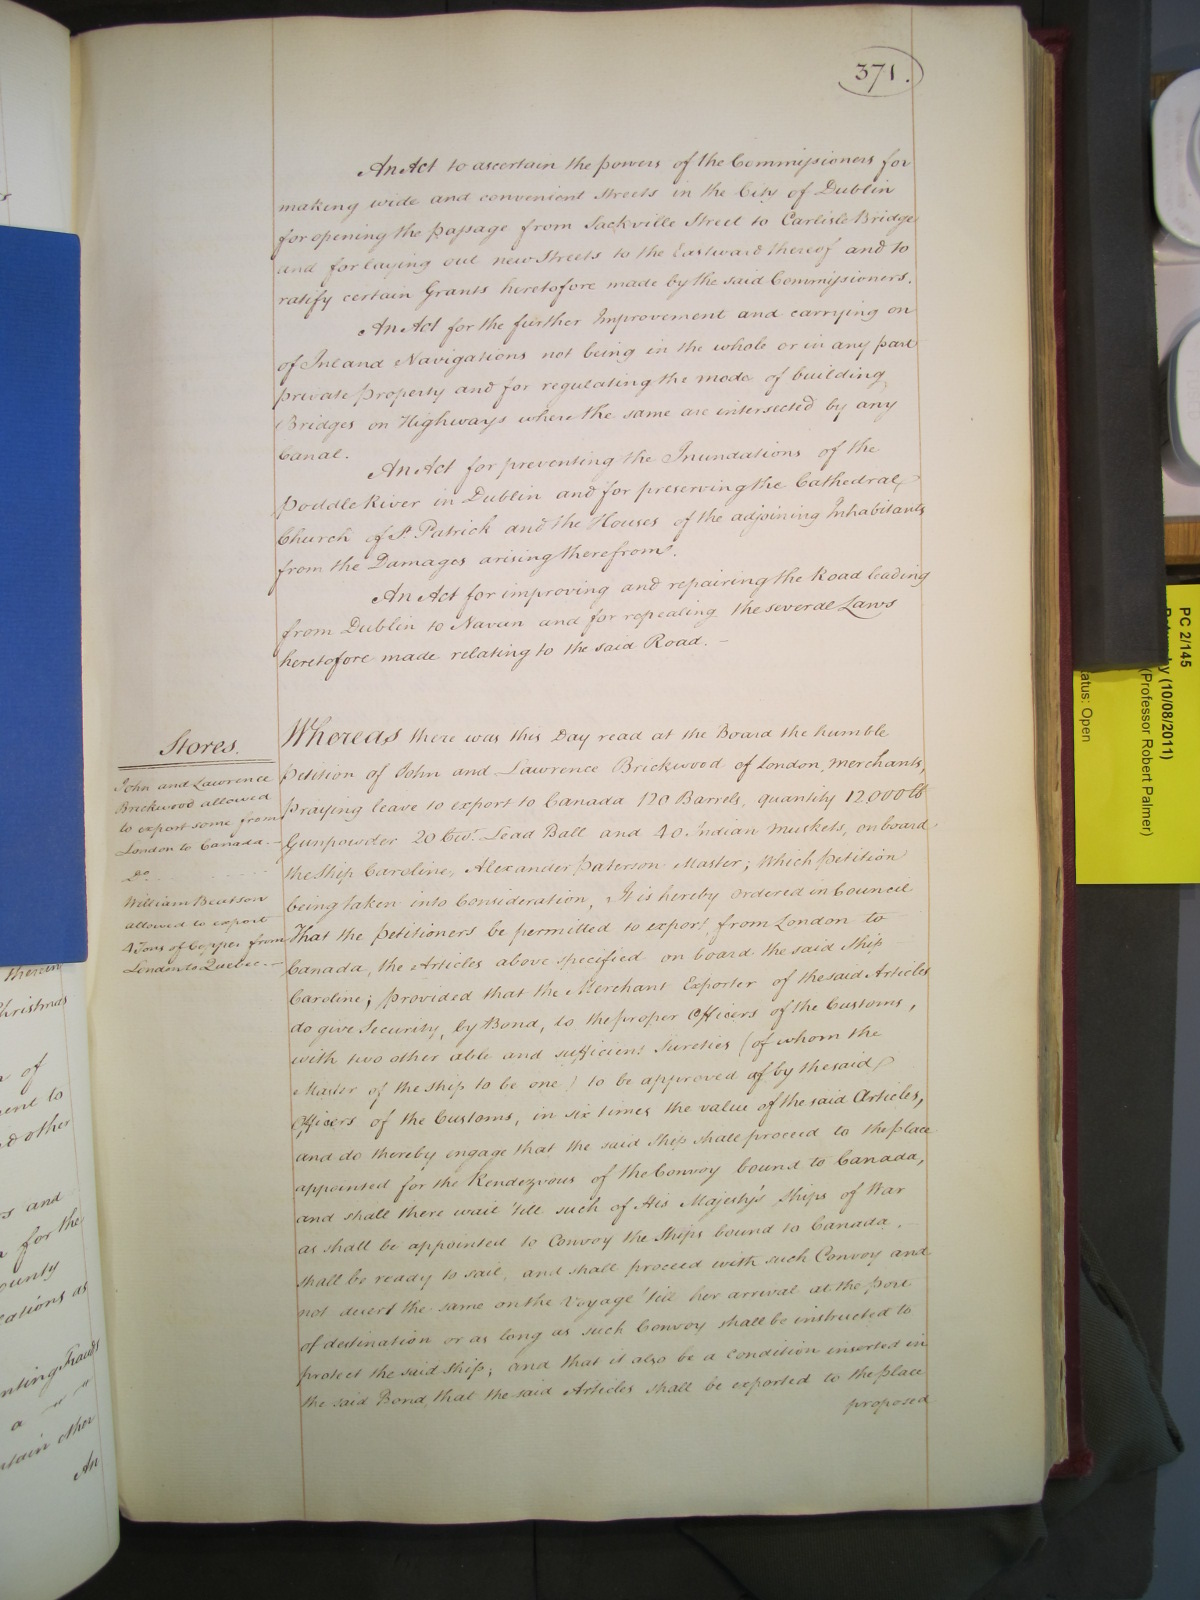 371.
An Act to ascertain the powers of the Commissioners for
making wide and convenient Streets in the City of Dublin
for opening the passage from Sackville Street to Carlisle Bridge
and for laying out new Streets to the Eastward thereof and to
ratify certain Grants heretofore made by the said Commissioners.
An Act for the further Improvement and carrying on
of Inland Navigations not being in the whole or in any part
private Property and for regulating the mode of building
Bridges on Highways where the same are intersected by any
Canal.
An Act for preventing the Inundations of the
Poddle River in Dublin and for preserving the Cathedral
Church of St. Patrick and the Houses of the adjoining Inhabitants
from the Damages arising therefrom.
An Act for improving and repairing the Road leading
from Dublin to Navan and for repealing the several Laws
heretofore made relating to the said Road.
Stores.
John and Lawrence
Brickwood allowed
to export some from
London to Canada.
Do.
William Beatson
allowed to export
4 Tons of Copper from
London to Quebec.
Whereas there was this Day read at the Board the humble
Petition of John and Lawrence Brickwood of London, merchants,
praying leave to export to Canada 120 Barrels, quantity 12000 lb
Gunpowder 20 Cwt. Lead Ball and 40 Indian muskets, on board
the Ship Caroline, Alexander Paterson Master; Which Petition
being taken into Consideration, It is hereby ordered in Council
That the Petitioners be permitted to export from London to
Canada, the Articles above specified on board the said Ship
Caroline; provided that the Merchant Exporter of the said Articles
do give Security, by Bond, to the proper Officers of the Customs,
with two other able and sufficient Sureties (of whom the
Master of the Ship to be one) to be approved of by the said
Officers of the Customs, in six times the value of the said Articles,
and do thereby engage that the said Ship shall proceed to the place
appointed for the Rendezvous of the Convoy bound to Canada,
and shall there wait 'till such of His Majesty's Ships of War
as shall be appointed to Convoy the Ships bound to Canada.
shall be ready to sail, and shall proceed with such Convoy and
not desert the same on the Voyage 'till her arrival at the Port
of destination or as long as such Convoy shall be instructed to
protect the said Ship; and that it also be a Condition inserted in
the said Bond, that the said Articles shall be exported to the place
proposed
therein
Christmas
of
ent to
d other
rs and
for the
ounty
cations as
nting Frauds
a " "
rtain other
An
PC 2/145
(10/08/2011)
(Professor Robert Palmer)
atus: Open